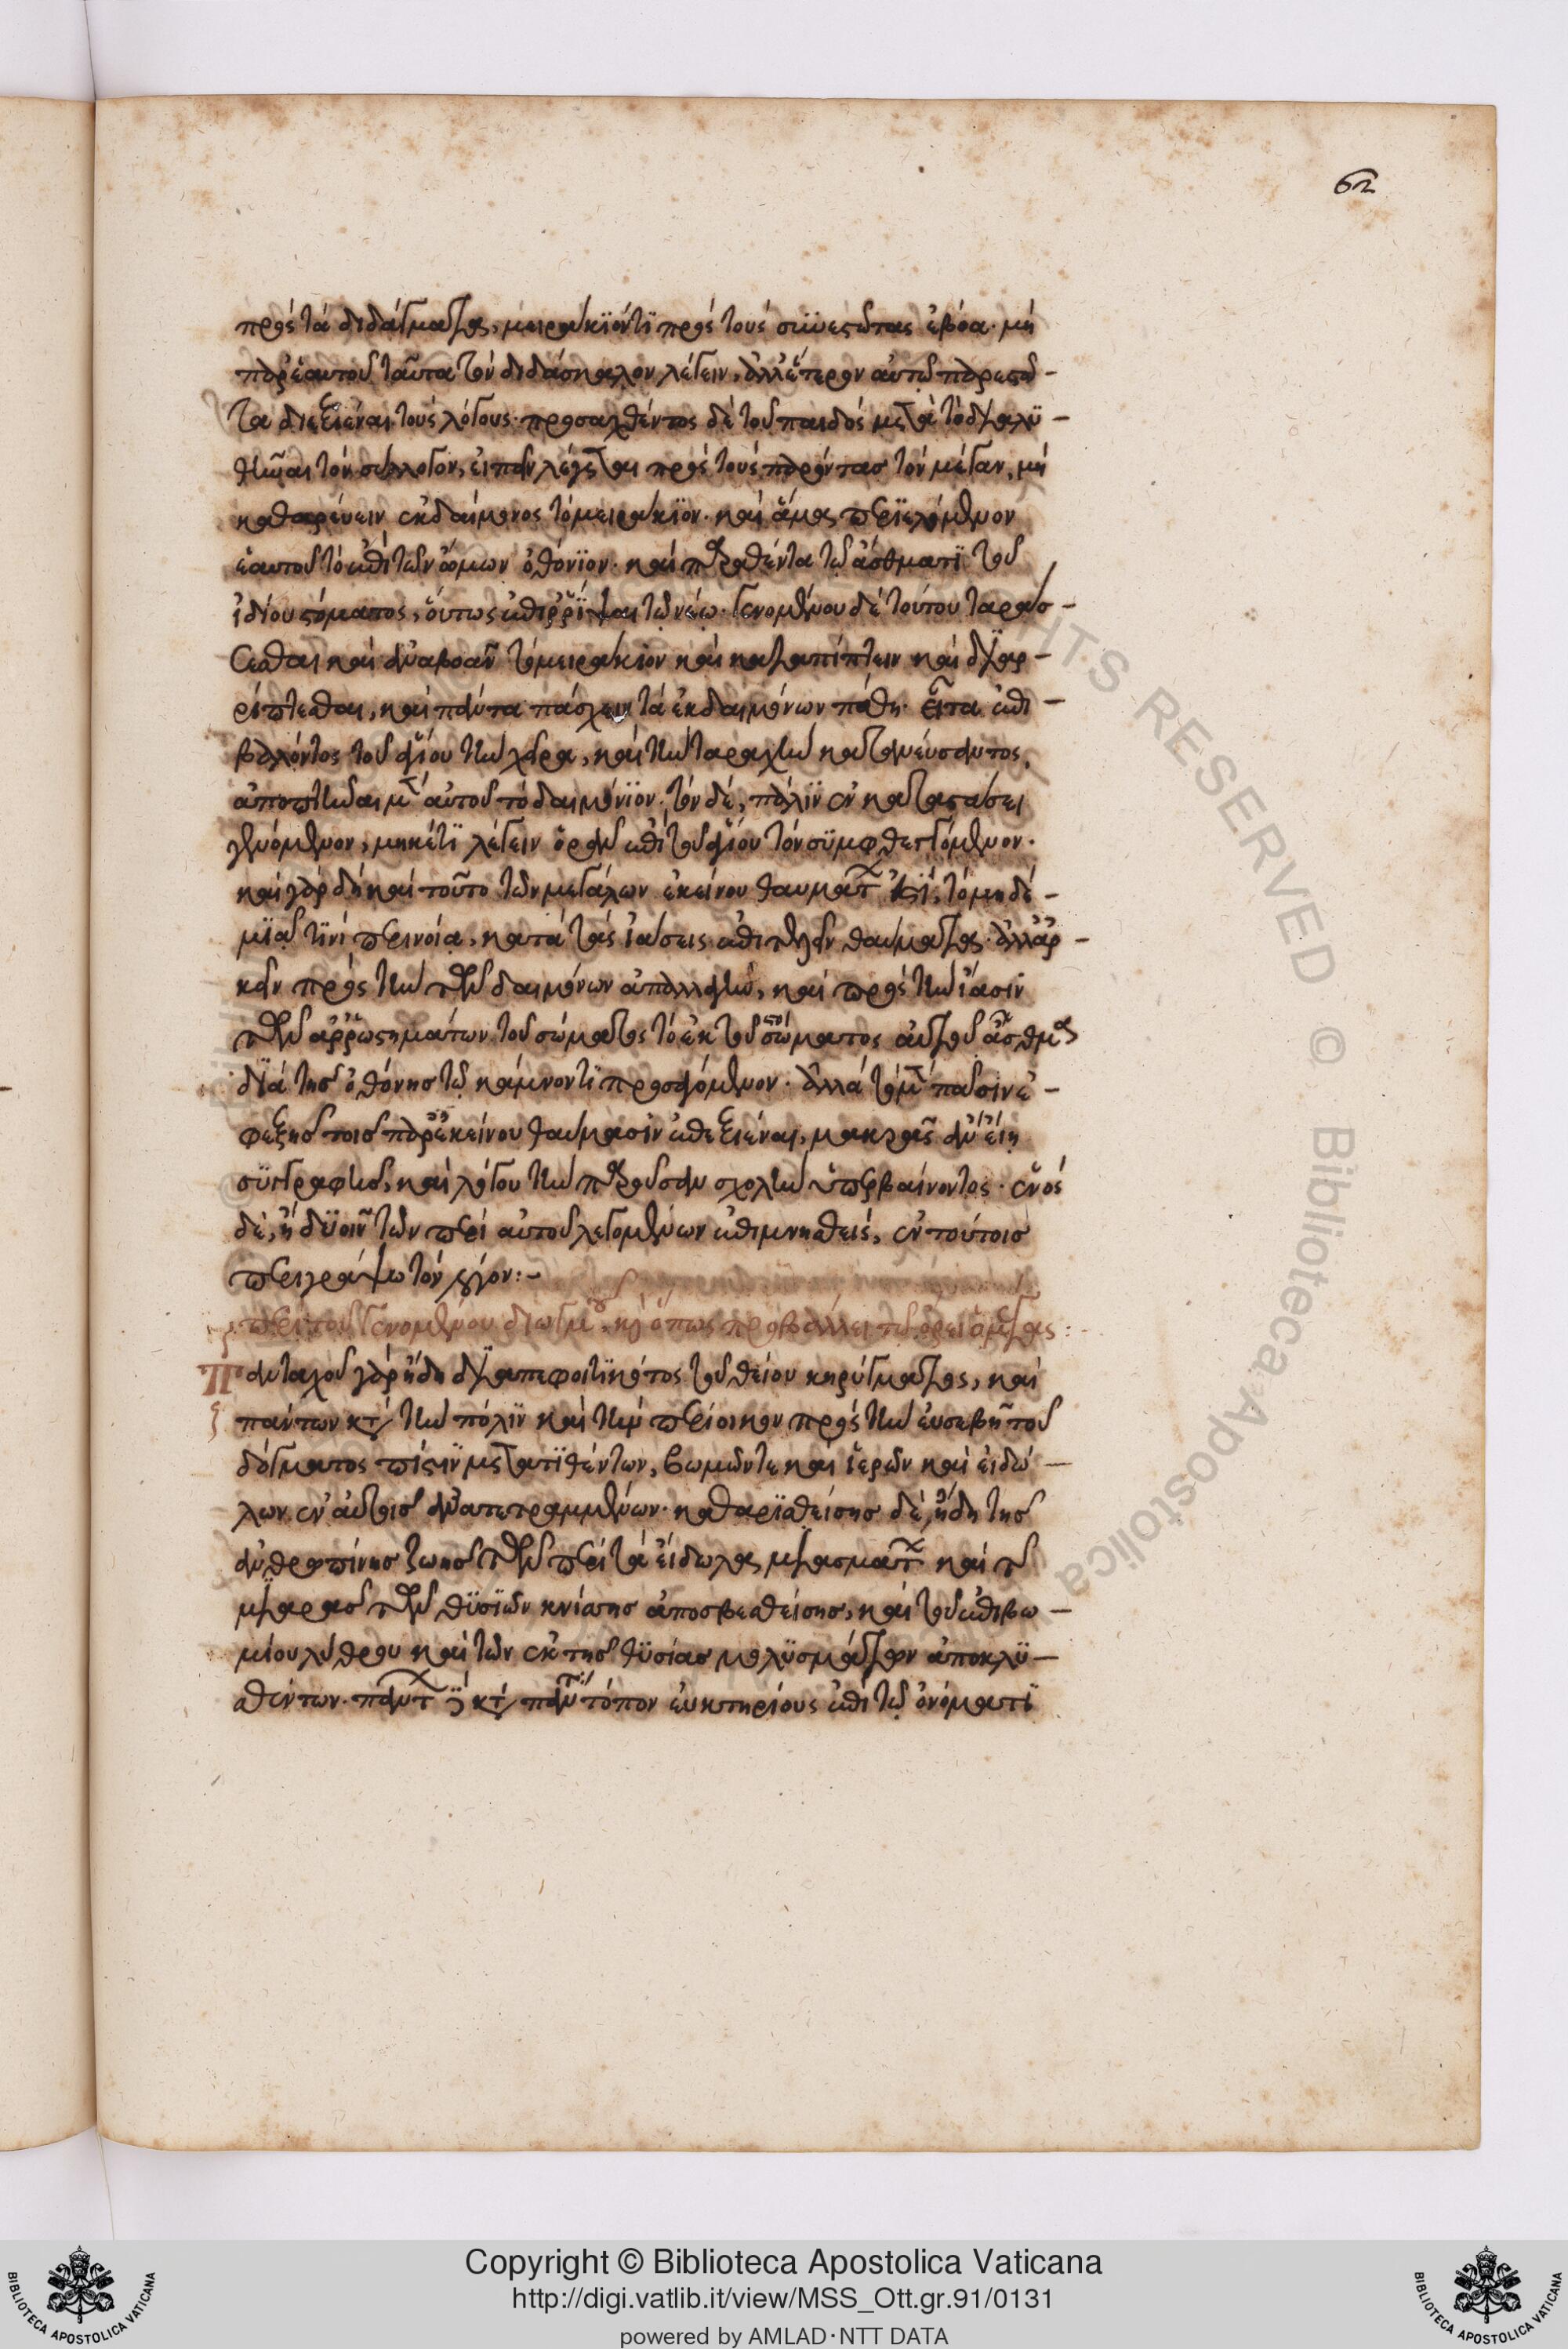 62
πρὸς τὰ διδάγματα, μειράκιόν τι πρὸς τοὺς συνεστῶτας ἐβόα· μὴ
παρ' ἑαυτοῦ ταῦτα τὸν διδάσκαλον λέγειν, ἀλλ' ἕτερον αὐτῶ παρεστῶ-
τα διεξιέναι τοὺς λόγους· προσαχθέντος δὲ τοῦ παιδὸς μετὰ τὸ διαλυ-
θῆναι τὸν σύλλογον, εἰπεῖν λέγεται πρὸς τοὺς παρόντας τὸν μέγαν, μὴ
καθαρεύειν ἐκ δαίμονος τὸ μειράκιον· καὶ ἅμα περιελόμενον
ἑαυτοῦ τὸ ἐπὶ τῶν ὤμων ὀθόνιον· καὶ τῶ ἄσθματι τοῦ
ἰδίου στόματος, οὕτως ἐπιρρῖψαι τῶ νέω· γενομένου δὲ τούτου ταράσ-
σεσθαι καὶ ἀναβοᾶν τὸ μειράκιον καὶ καταπίπτειν καὶ διαρ-
ρίπτεσθαι, καὶ πάντα πάσχειν τὰ ἐκ δαιμόνων πάθη· εἶτα ἐπι-
βαλόντος τοῦ ἁγίου τὴν χεῖρα, καὶ τὴν ταραχὴν κατευνάσαντος,
ἀποπτῆναι μὲν αὐτοῦ τὸ δαιμόνιον· τὸν δὲ, πάλιν ἐν καταστάσει
γενόμενον, μηκέτι λέγειν ὁρᾶν ἐπὶ τοῦ ἁγίου τὸν συμφθεγγόμενον·
καὶ γὰρ δὴ καὶ τοῦτο τῶν μεγάλων ἐκείνου θαυμάτ ἐστὶ, τὸ μηδε-
μιᾶ τινὶ περινοία, κατὰ τὰς ἰάσεις ἐπιτελεῖν θαύματα· ἀλλ' ἀρ-
κεῖν πρὸς τὴν τῶν δαιμόνων ἀπαλλαγὴν, καὶ πρὸς τὴν ἴασιν
τῶν ἀρρωστημάτων τοῦ σώματος τὸ ἐκ τοῦ στόματος αὐτοῦ ἄσθμα
διὰ τῆς ὀθόνης τῶ κάμνοντι προσαγόμενον· ἀλλὰ τὸ μὲν πᾶσιν ἐ-
φεξῆς τοῖς παρ' ἐκείνου θαύμασιν ἐπεξιέναι, μακρᾶς ἂν εἴη
συγγραφῆς, καὶ λόγου τὴν παροῦσαν σχολὴν ὑπερβαίνοντος· ἑνὸς
δὲ, ἢ δυοῖν τῶν περὶ αὐτοῦ λεγομένων ἐπιμνησθεὶς, ἐν τούτοις
περιγράψω τὸν λόγον:-
περὶ τοῦ γενομένου διωγμοῦ, καὶ ὅπως
Πανταχοῦ γὰρ ἤδη διαπεφοιτηκότος τοῦ θείου κηρύγματος, καὶ
πάντων κατὰ τὴν πόλιν καὶ τὴν περίοικον πρὸς τὴν εὐσεβῆ τοῦ
δόγματος πίστιν μετατιθέντων, βωμῶν τε καὶ ἱερῶν καὶ εἰδώ-
λων ἐν αὐτοῖς ἀνατετραμμένων· καθαρισθείσης δὲ, ἤδη τῆς
ἀνθρωπίνης ζωῆς τῶν περὶ τὰ εἴδωλα μιασμάτ καὶ τῆς
μιαρᾶς τῶν θυσιῶν κνίσσης ἀποσβεσθείσης, καὶ τοῦ ἐπιβω-
μίου λύθρου καὶ τῶν ἐκ τῆς θυσίας μολυσμάτων ἀποκλυ-
σθέντων· πάντ δὲ κατὰ πάντα τόπον εὐκτηρίους ἐπὶ τῶ ὀνόματι
RIGHTS RESERVED © Biblioteca Apostolica
Copyright © Biblioteca Apostolica Vaticana
http://digi.vatlib.it/view/MSS_Ott.gr.91/0131
powered by AMLAD·NTT DATA
BIBLIOTECA APOSTOLICA VATICANA
BIBLIOTECA APOSTOLICA VATICANA